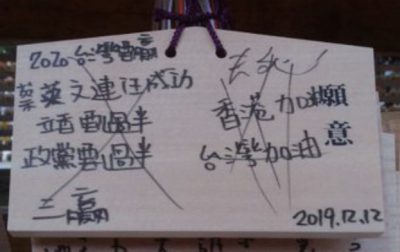 2020台灣要贏
蔡英文連任成功
立委要過半
政黨要過半
三贏
去死
香港加油
台灣加油
願意
2019.12.12